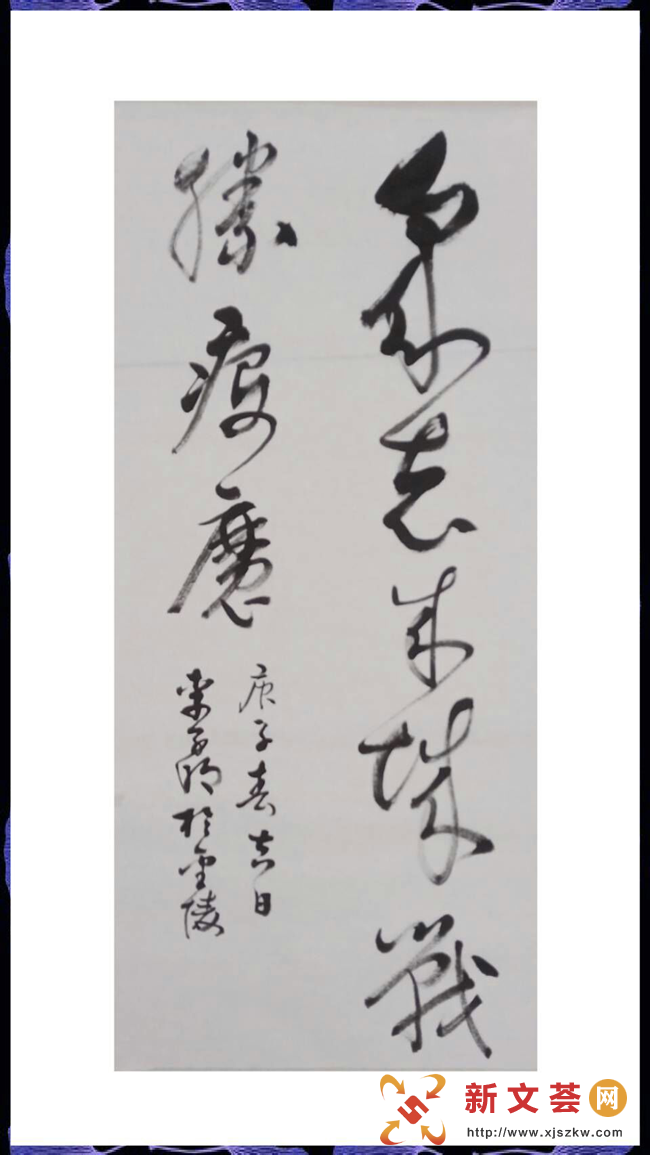 眾志成城戰
勝疫魔
庚子春吉日
於金陵
新文荟网
http://www.xjszkw.com